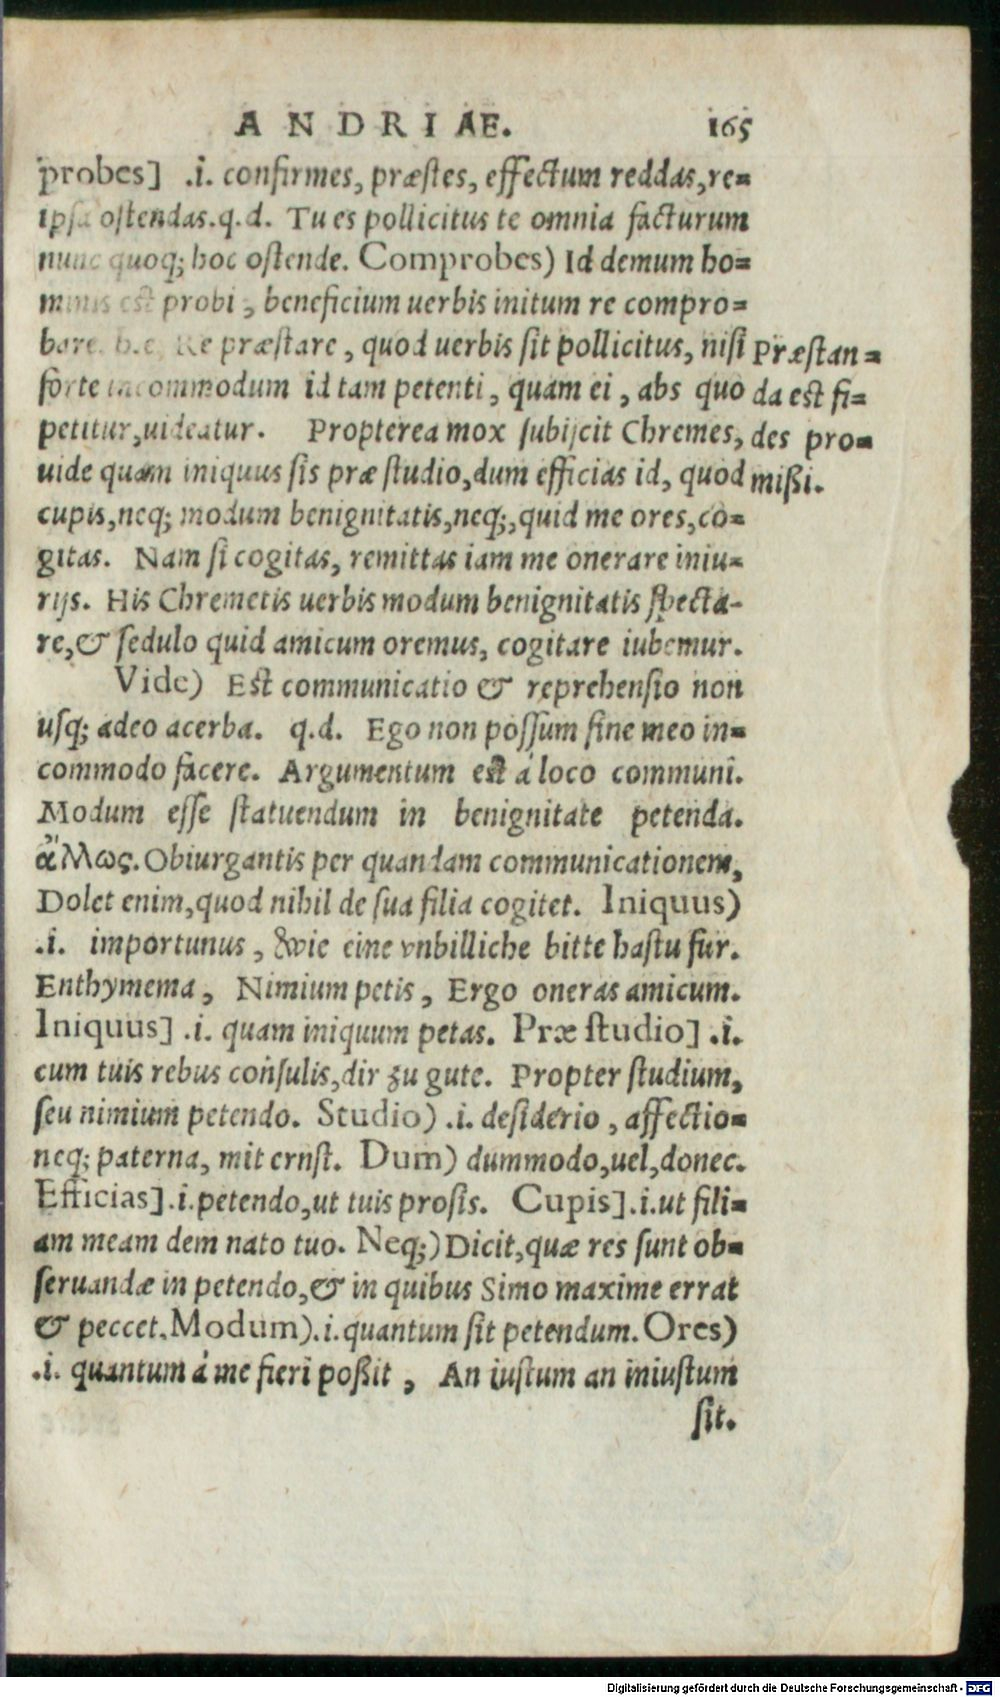 ANDRIAE. 165
probes] .i. confirmes, præstes, effectum reddas, re=
ipsa ostendas. q.d. Tu es pollicitus te omnia facturum
nunc quoq; hoc ostende. Comprobes) Id demum ho=
minis est probi, beneficium uerbis initum re compro=
bare. h.e. Re præstare, quod uerbis sit pollicitus, nisi
forte incommodum id tam petenti, quam ei, abs quo
petitur, uideatur. Propterea mox subijcit Chremes,
uide quam iniquus sis præ studio, dum efficias id, quod
cupis, neq; modum benignitatis, neq;, quid me ores, co=
gitas. Nam si cogitas, remittas iam me onerare iniu=
rijs. His Chremetis uerbis modum benignitatis specta-
re, & sedulo quid amicum oremus, cogitare iubemur.
Vide) Est communicatio & reprehensio non
usq; adeo acerba. q.d. Ego non possum sine meo in=
commodo facere. Argumentum est á loco communi.
Modum esse statuendum in benignitate petenda.
ἄλλως. Obiurgantis per quandam communicationem,
Dolet enim, quod nihil de sua filia cogitet. Iniquus)
.i. importunus, wie eine vnbilliche bitte hastu fur.
Enthymema, Nimium petis, Ergo oneras amicum.
Iniquus] .i. quam iniquum petas. Præ studio] .i.
cum tuis rebus consulis, dir zu gute. Propter studium,
seu nimium petendo. Studio) .i. desiderio, affectio=
neq; paterna, mit ernst. Dum) dummodo, uel, donec.
Efficias] .i. petendo, ut tuis prosis. Cupis] .i. ut fili=
am meam dem nato tuo. Neq;) Dicit, quæ res sunt ob=
seruandæ in petendo, & in quibus Simo maxime errat
& peccet. Modum) .i. quantum sit petendum. Ores)
.i. quantum á me fieri poßit, An iustum an iniustum
sit.
Præstan=
da est fi=
des pro=
mißi.
Digitalisierung gefördert durch die Deutsche Forschungsgemeinschaft - DFG